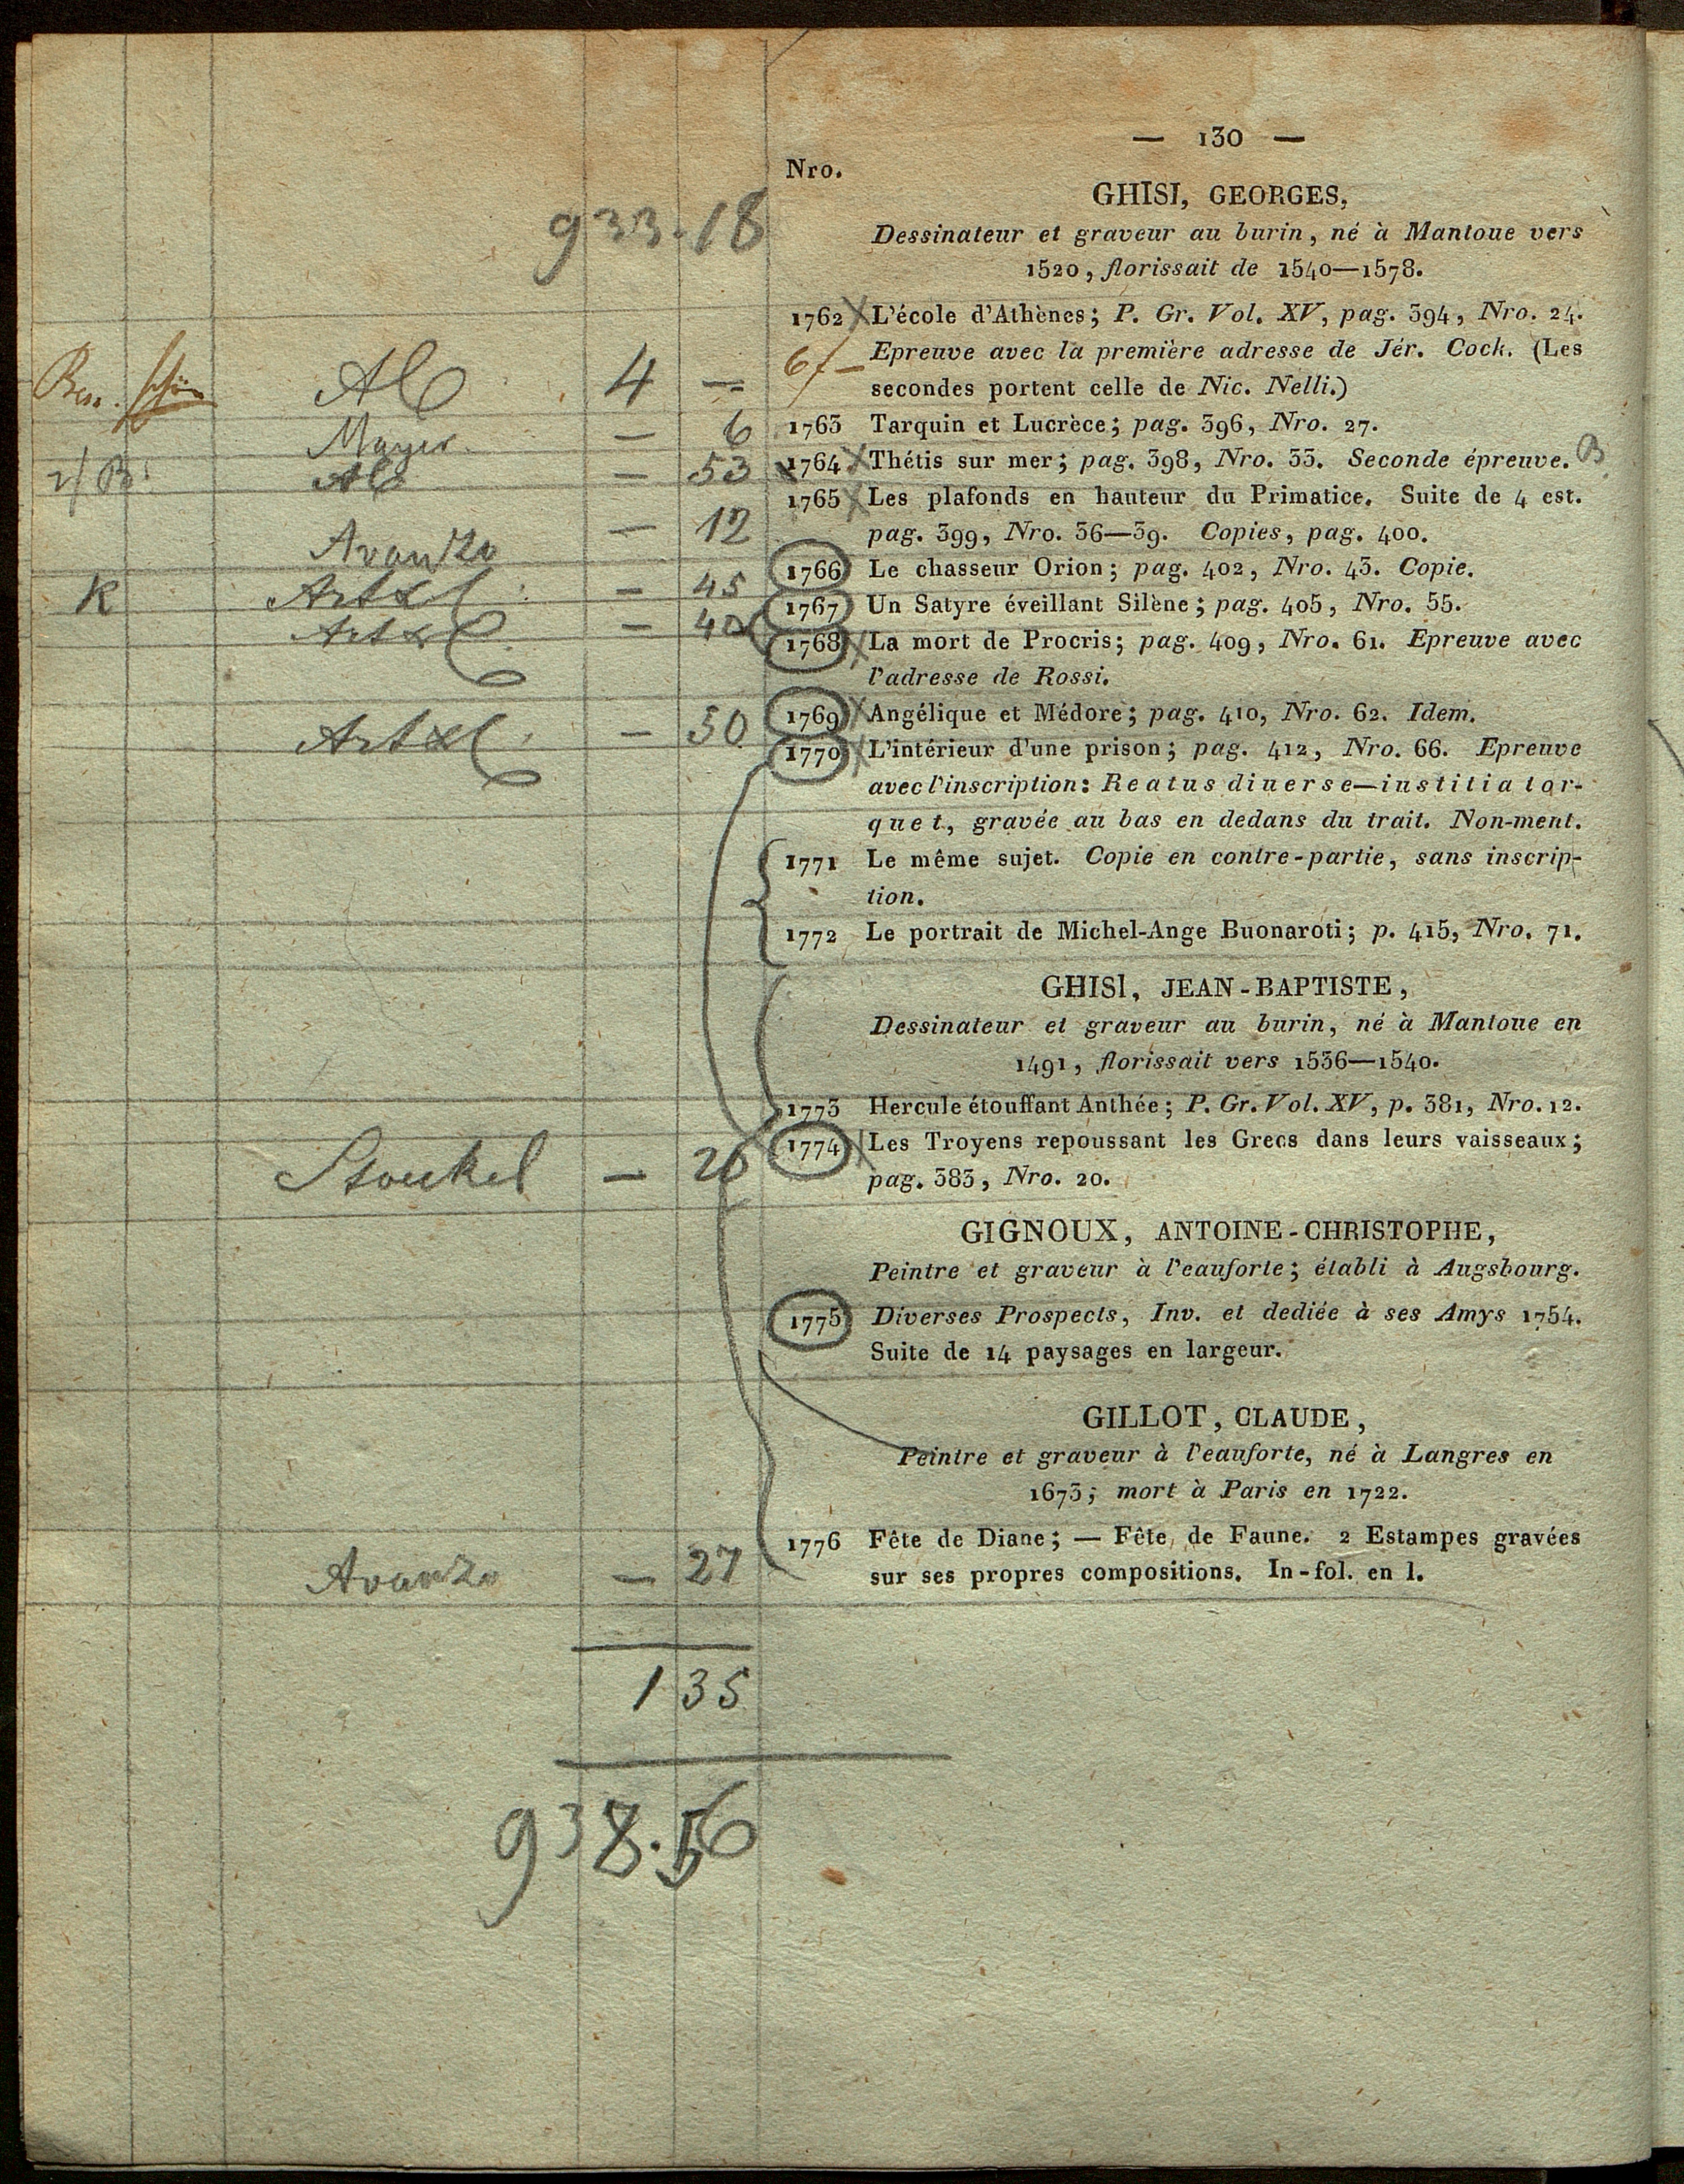 — 130 —
Nro.
933.18
GHISI, GEORGES,
Dessinateur et graveur au burin, né à Mantoue vers
1520, florissait de 1540—1578.
1762 L'école d'Athènes; P. Gr. Vol. XV, pag. 394, Nro. 24.
Epreuve avec la première adresse de Jér. Cock. (Les
secondes portent celle de Nic. Nelli.)
4 —
— 6 1763 Tarquin et Lucrèce; pag. 396, Nro. 27.
— 53 1764 Thétis sur mer; pag. 398, Nro. 33. Seconde épreuve. B
1765 Les plafonds en hauteur du Primatice. Suite de 4 est.
Avanzo — 12 pag. 399, Nro. 36—39. Copies, pag. 400.
1766 Le chasseur Orion; pag. 402, Nro. 43. Copie.
K — 45 1767 Un Satyre éveillant Silène; pag. 405, Nro. 55.
— 40 1768 La mort de Procris; pag. 409, Nro. 61. Epreuve avec
l'adresse de Rossi.
— 50 1769 Angélique et Médore; pag. 410, Nro. 62. Idem.
1770 L'intérieur d'une prison; pag. 412, Nro. 66. Epreuve
avec l'inscription: Reatus diuerse—iustitia tor-
quet, gravée au bas en dedans du trait. Non-ment.
1771 Le même sujet. Copie en contre-partie, sans inscrip-
tion.
1772 Le portrait de Michel-Ange Buonaroti; p. 415, Nro. 71.
GHISI, JEAN-BAPTISTE,
Dessinateur et graveur au burin, né à Mantoue en
1491, florissait vers 1536—1540.
1773 Hercule étouffant Anthée; P. Gr. Vol. XV, p. 381, Nro. 12.
1774 Les Troyens repoussant les Grecs dans leurs vaisseaux;
Stoeckel — 26 pag. 383, Nro. 20.
GIGNOUX, ANTOINE-CHRISTOPHE,
Peintre et graveur à l'eauforte; établi à Augsbourg.
1775 Diverses Prospects, Inv. et dediée à ses Amys 1754.
Suite de 14 paysages en largeur.
GILLOT, CLAUDE,
Peintre et graveur à l'eauforte, né à Langres en
1673; mort à Paris en 1722.
1776 Fête de Diane; — Fête, de Faune. 2 Estampes gravées
Avanzo — 27 sur ses propres compositions. In-fol. en l.
1 35
938.56